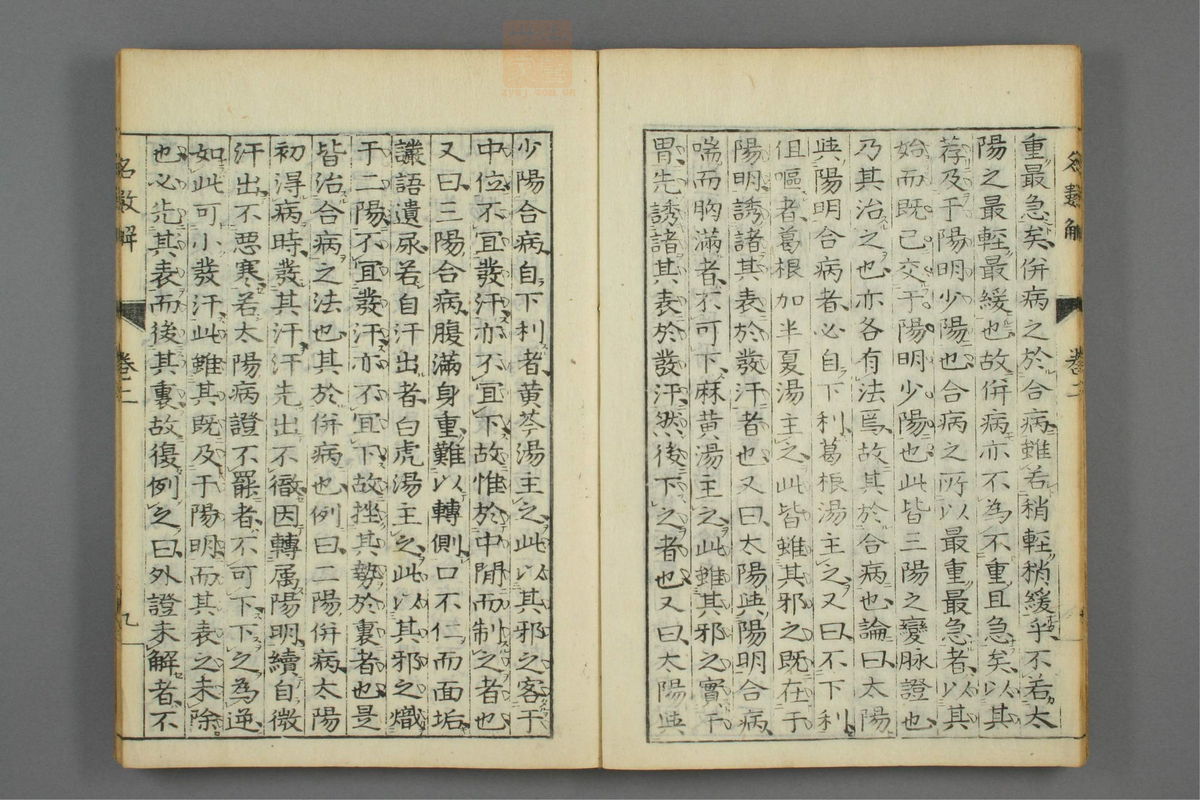 重最急矣併病之於合病雖若稍輕稍緩乎不若太
陽之最輕最緩也故併病亦不為不重且急矣以其
荐及于陽明少陽也合病之所以最重最急者以其
始而既已交于陽明少陽也此皆三陽之變脉證也
乃其治之也亦各有法焉故其於合病也論曰太陽
與陽明合病者必自下利葛根湯主之又曰不下利
但嘔者葛根加半夏湯主之此皆雖其邪之既在于
陽明誘諸其表於發汗者也又曰太陽與陽明合病
喘而胸滿者不可下麻黃湯主之此雖其邪之實于
胃先誘諸其表於發汗然後下之者也又曰太陽與
少陽合病自下利者黃芩湯主之此以其邪之客于
中位不宜發汗亦不宜下故惟於中間而制之者也
又曰三陽合病腹滿身重難以轉側口不仁而面垢
讝語遺尿若自汗出者白虎湯主之此以其邪之熾
于二陽不宜發汗亦不宜下故挫其勢於裏者也是
皆治合病之法也其於併病也例曰二陽併病太陽
初淂病時發其汗汗先出不徹因轉属陽明續自微
汗出不惡寒若太陽病證不罷者不可下下之為逆
如此可小發汗此雖其既及于陽明而其表之未除
也必先其表而後其裏故復例之曰外證未解者不
名數解
卷二
九